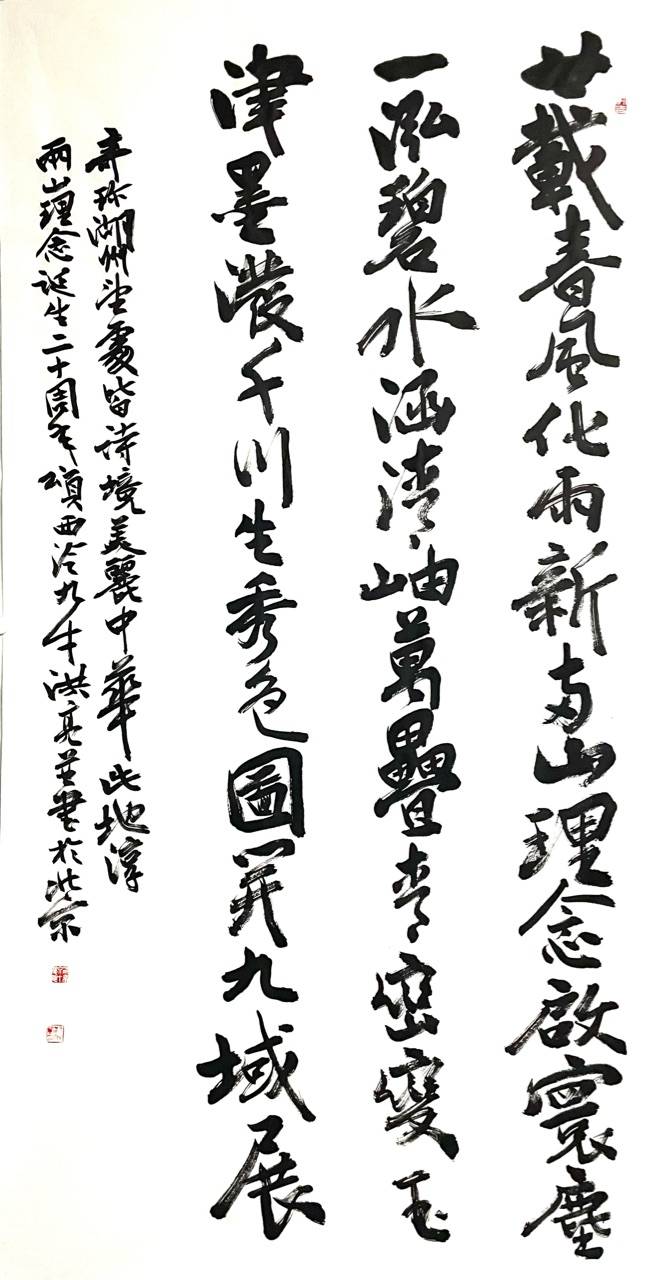 廿載春風化雨新兩山理念啟寰塵
一泓碧水涵清岫萬疊青巒變玉
津墨濃千川生秀色圖開九域展
奇珍湖州望處皆詩境美麗中華此地淳
兩山理念誕生二十周年頌西泠九牛洪亮並書於北京